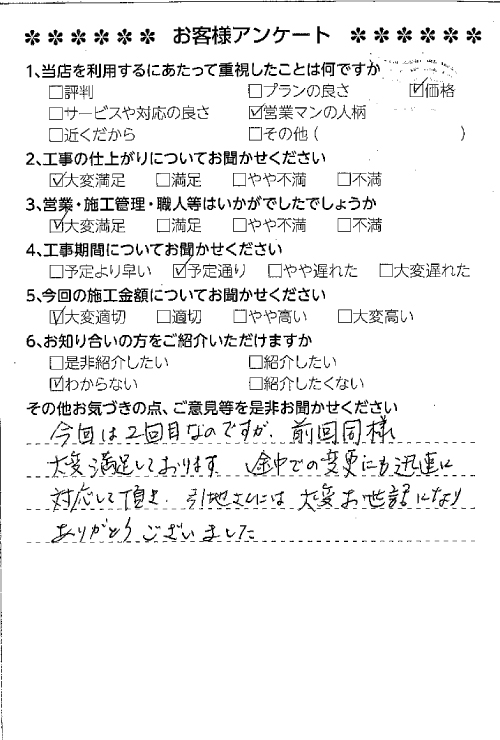 ✻ ✻ ✻ ✻ ✻ ✻ お客様アンケート ✻ ✻ ✻ ✻ ✻ ✻
1、当店を利用するにあたって重視したことは何ですか
□評判 □プランの良さ ☑価格
□サービスや対応の良さ ☑営業マンの人柄
□近くだから □その他 ( )
2、工事の仕上がりについてお聞かせください
☑大変満足 □満足 □やや不満 □不満
3、営業・施工管理・職人等はいかがでしたでしょうか
☑大変満足 □満足 □やや不満 □不満
4、工事期間についてお聞かせください
□予定より早い ☑予定通り □やや遅れた □大変遅れた
5、今回の施工金額についてお聞かせください
☑大変適切 □適切 □やや高い □大変高い
6、お知り合いの方をご紹介いただけますか
□是非紹介したい □紹介したい
☑わからない □紹介したくない
その他お気づきの点、ご意見等を是非お聞かせください
今回は2回目なのですが、前回同様
大変満足しております 途中での変更にも迅速に
対応して頂き、引地さんには大変お世話になり
ありがとうございました